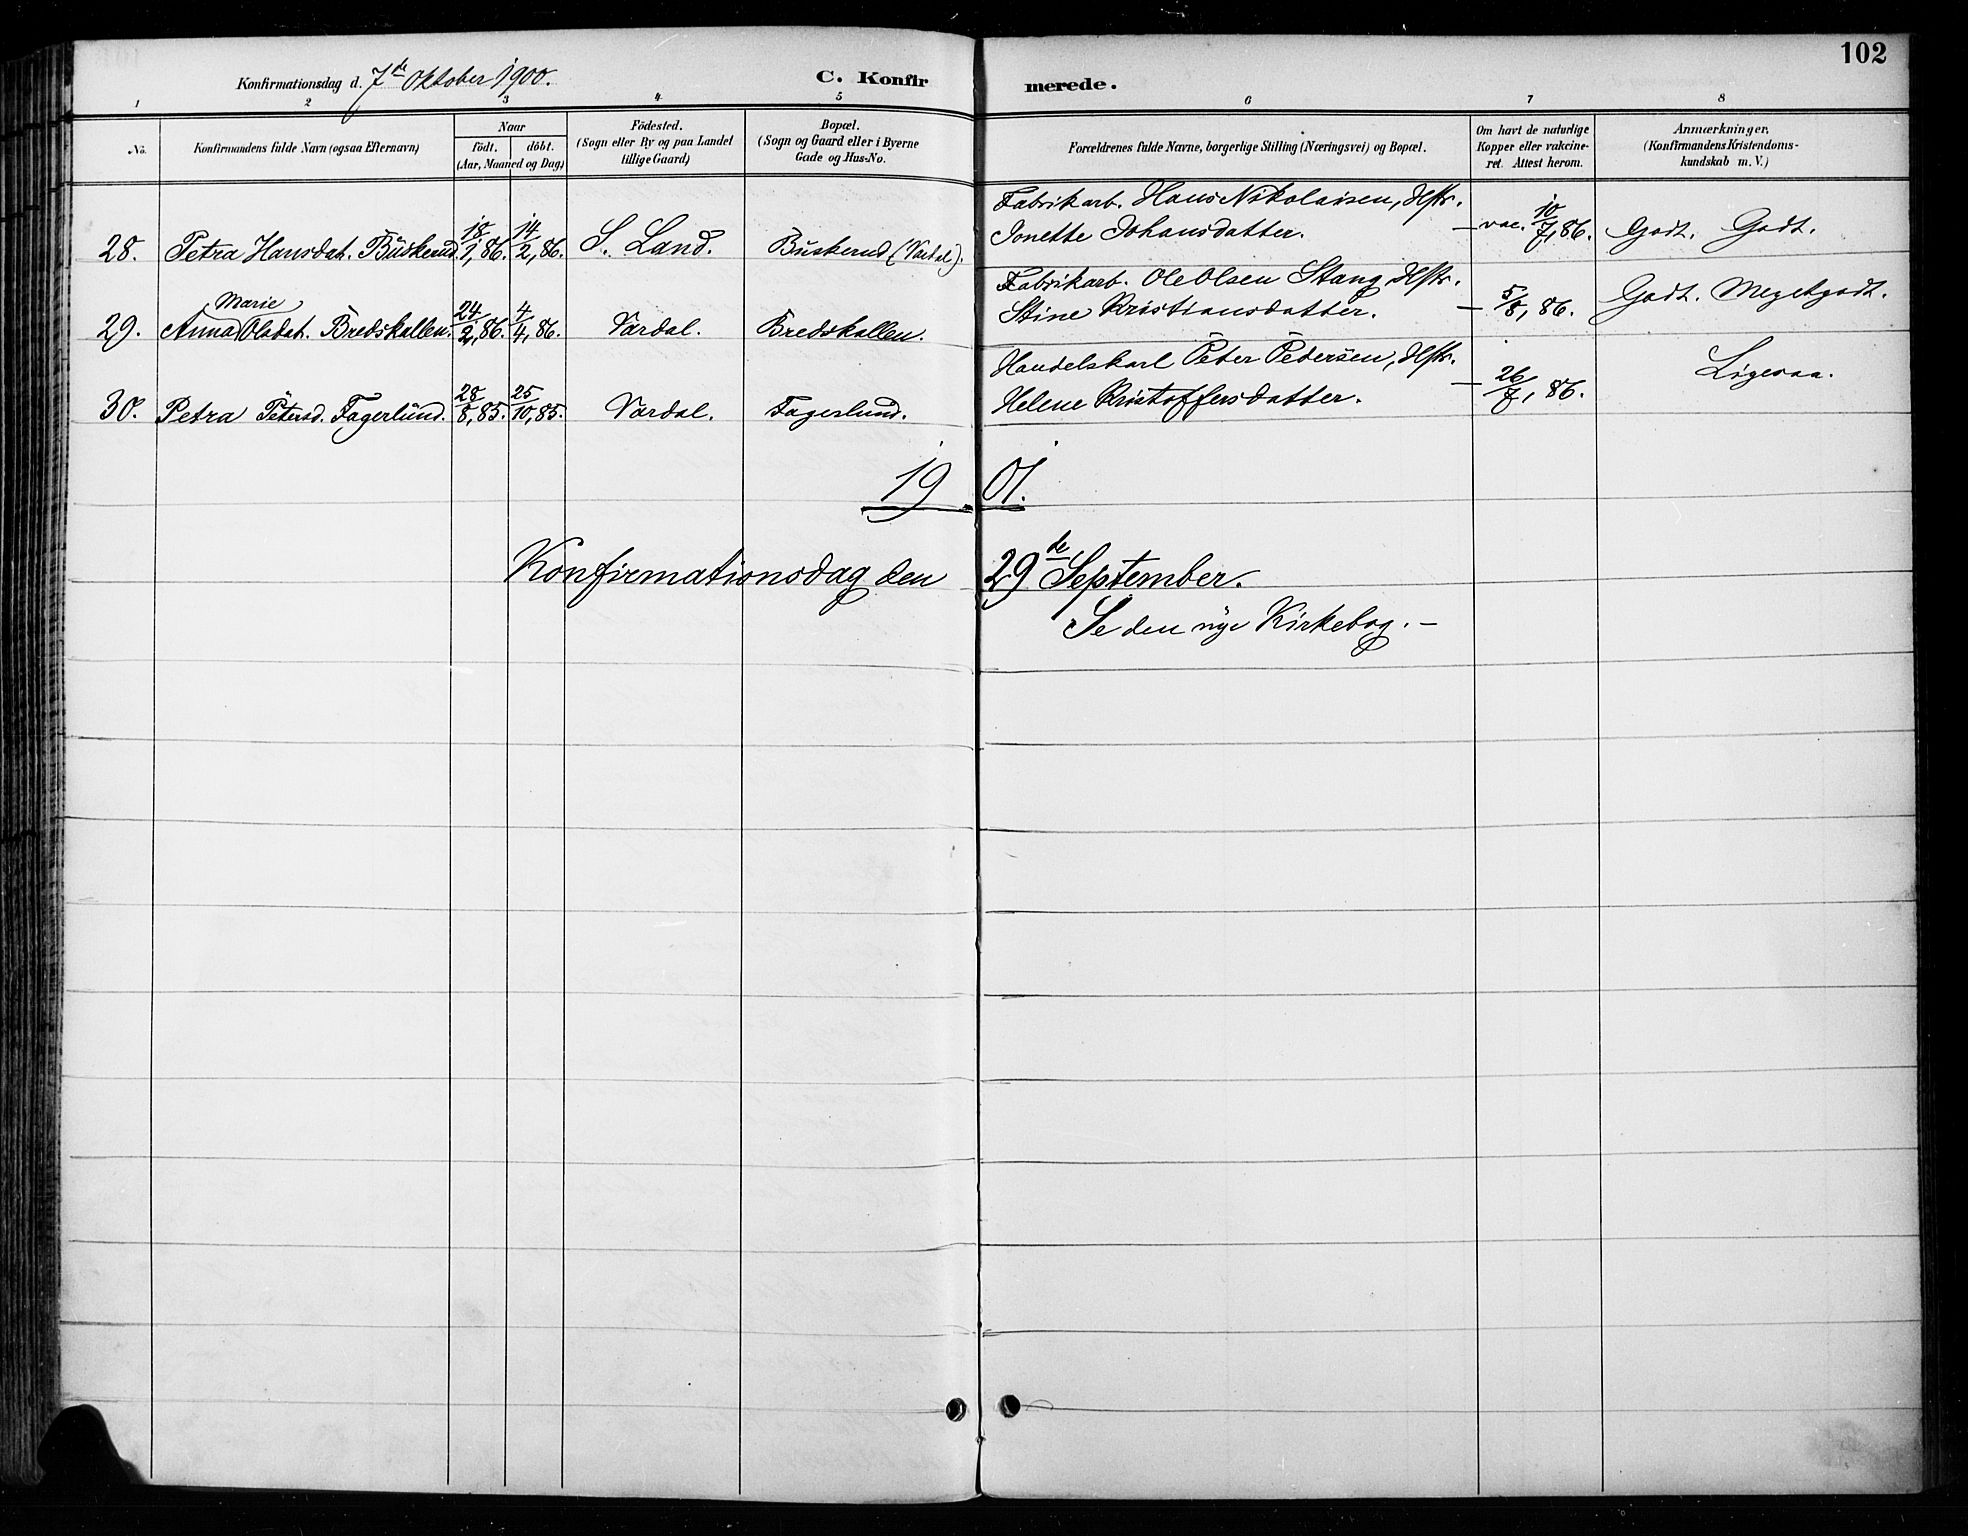 102
Konfirmationsdag d. 7de Oktober 1900.
C. Konfirmerede.
1 2 3 4 5 6 7 8
No.
Konfirmandens fulde Navn (ogsaa Efternavn)
Naar
født. døbt.
(Aar, Maaned og Dag)
Fødested.
(Sogn eller By og paa Landet
tillige Gaard)
Bopæl.
(Sogn og Gaard eller i Byerne
Gade og Hus-No.
Forældrenes fulde Navne, borgerlige Stilling (Næringsvei) og Bopæl.
Om havt de naturlige
Kopper eller vakcine-
ret. Attest herom.
Anmærkninger.
(Konfirmandens Kristendoms-
kundskab m. V.)
28. Petra Hansdat. Buskerud. 18/1, 86. 14/2, 86. S. Land. Buskerud (Vardal).
Fabrikarb. Hans Nikolaisen, Hstr.
Jonette Johansdatter. — vac. 10/7, 86. Godt. Godt.
29. Anna Marie Olsdat. Bredskallen. 24/2, 86. 4/4, 86. Vardal. Bredskallen.
Fabrikarb. Ole Olsen Stang, Hstr.
Stine Kristiansdatter. — 5/8, 86. Godt. Megetgodt.
30. Petra Petersd. Fagerlund. 28/8, 85. 25/10, 85. Vardal. Fagerlund.
Handelskarl Peter Pedersen, Hstr.
Helene Kristoffersdatter. — 26/7, 86. Ligesaa.
1901.
Konfirmationsdag den 29de September.
Se den nye Kirkebog. —